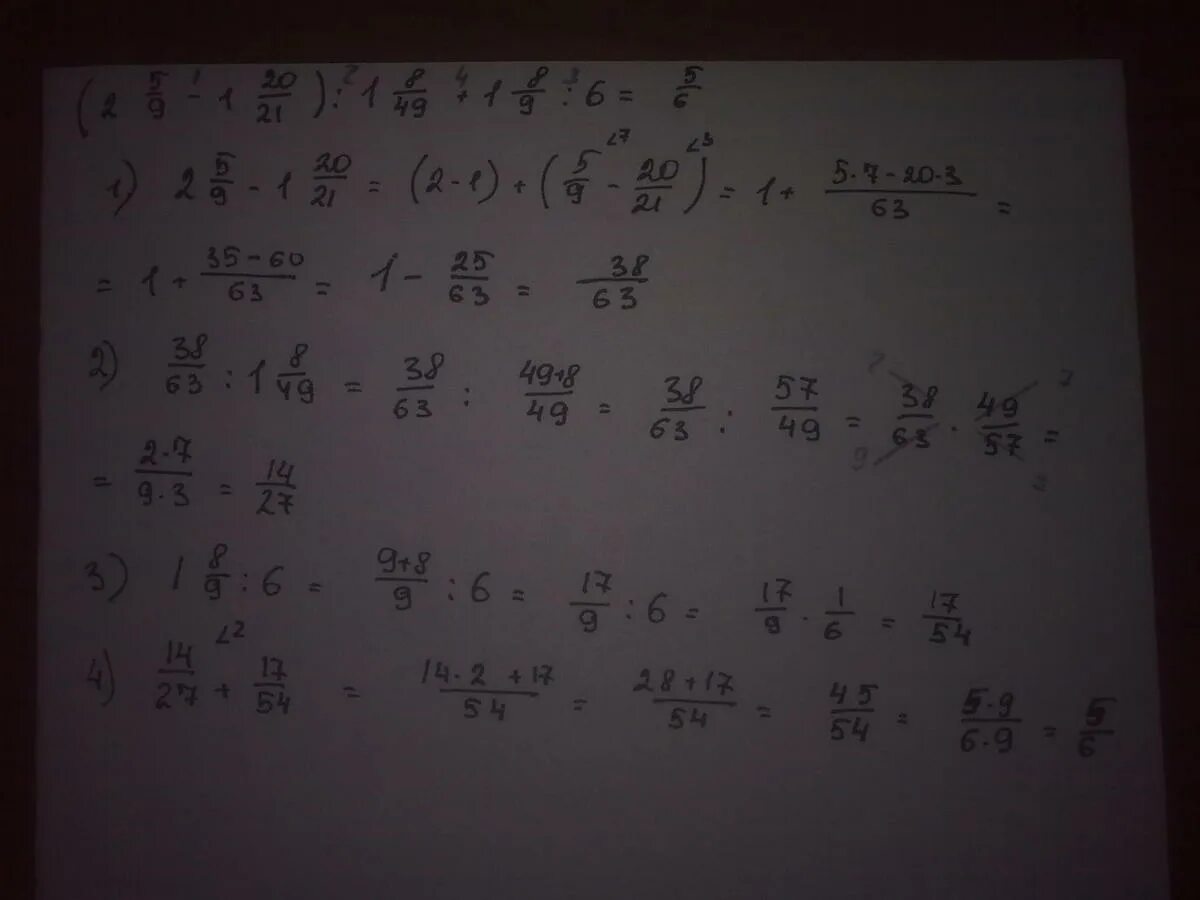 (2 5/9 - 1 20/21) : 1 8/49 + 1 8/9 : 6 = 5/6
1) 2 5/9 - 1 20/21 = (2-1) + (5/9 - 20/21) = 1 + (5·7-20·3)/63 =
= 1 + (35-60)/63 = 1 - 25/63 = 38/63
2) 38/63 : 1 8/49 = 38/63 : (49+8)/49 = 38/63 : 57/49 = 38/63 · 49/57 =
= (2·7)/(9·3) = 14/27
3) 1 8/9 : 6 = (9+8)/9 : 6 = 17/9 : 6 = 17/9 · 1/6 = 17/54
4) 14/27 + 17/54 = (14·2+17)/54 = (28+17)/54 = 45/54 = (5·9)/(6·9) = 5/6